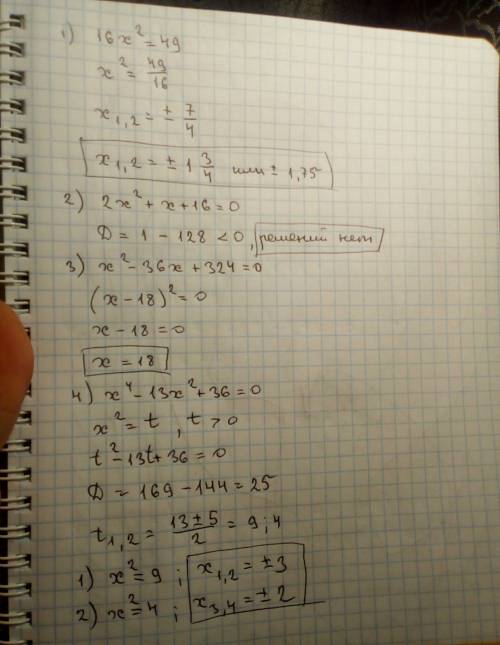 1) 16x² = 49
x² = 49/16
x₁,₂ = ± 7/4
x₁,₂ = ± 1 3/4 или ± 1,75
2) 2x² + x + 16 = 0
D = 1 - 128 < 0, решений нет
3) x² - 36x + 324 = 0
(x - 18)² = 0
x - 18 = 0
x = 18
4) x⁴ - 13x² + 36 = 0
x² = t, t > 0
t² - 13t + 36 = 0
D = 169 - 144 = 25
t₁,₂ = (13 ± 5)/2 = 9; 4
1) x² = 9; x₁,₂ = ± 3
2) x² = 4; x₃,₄ = ± 2